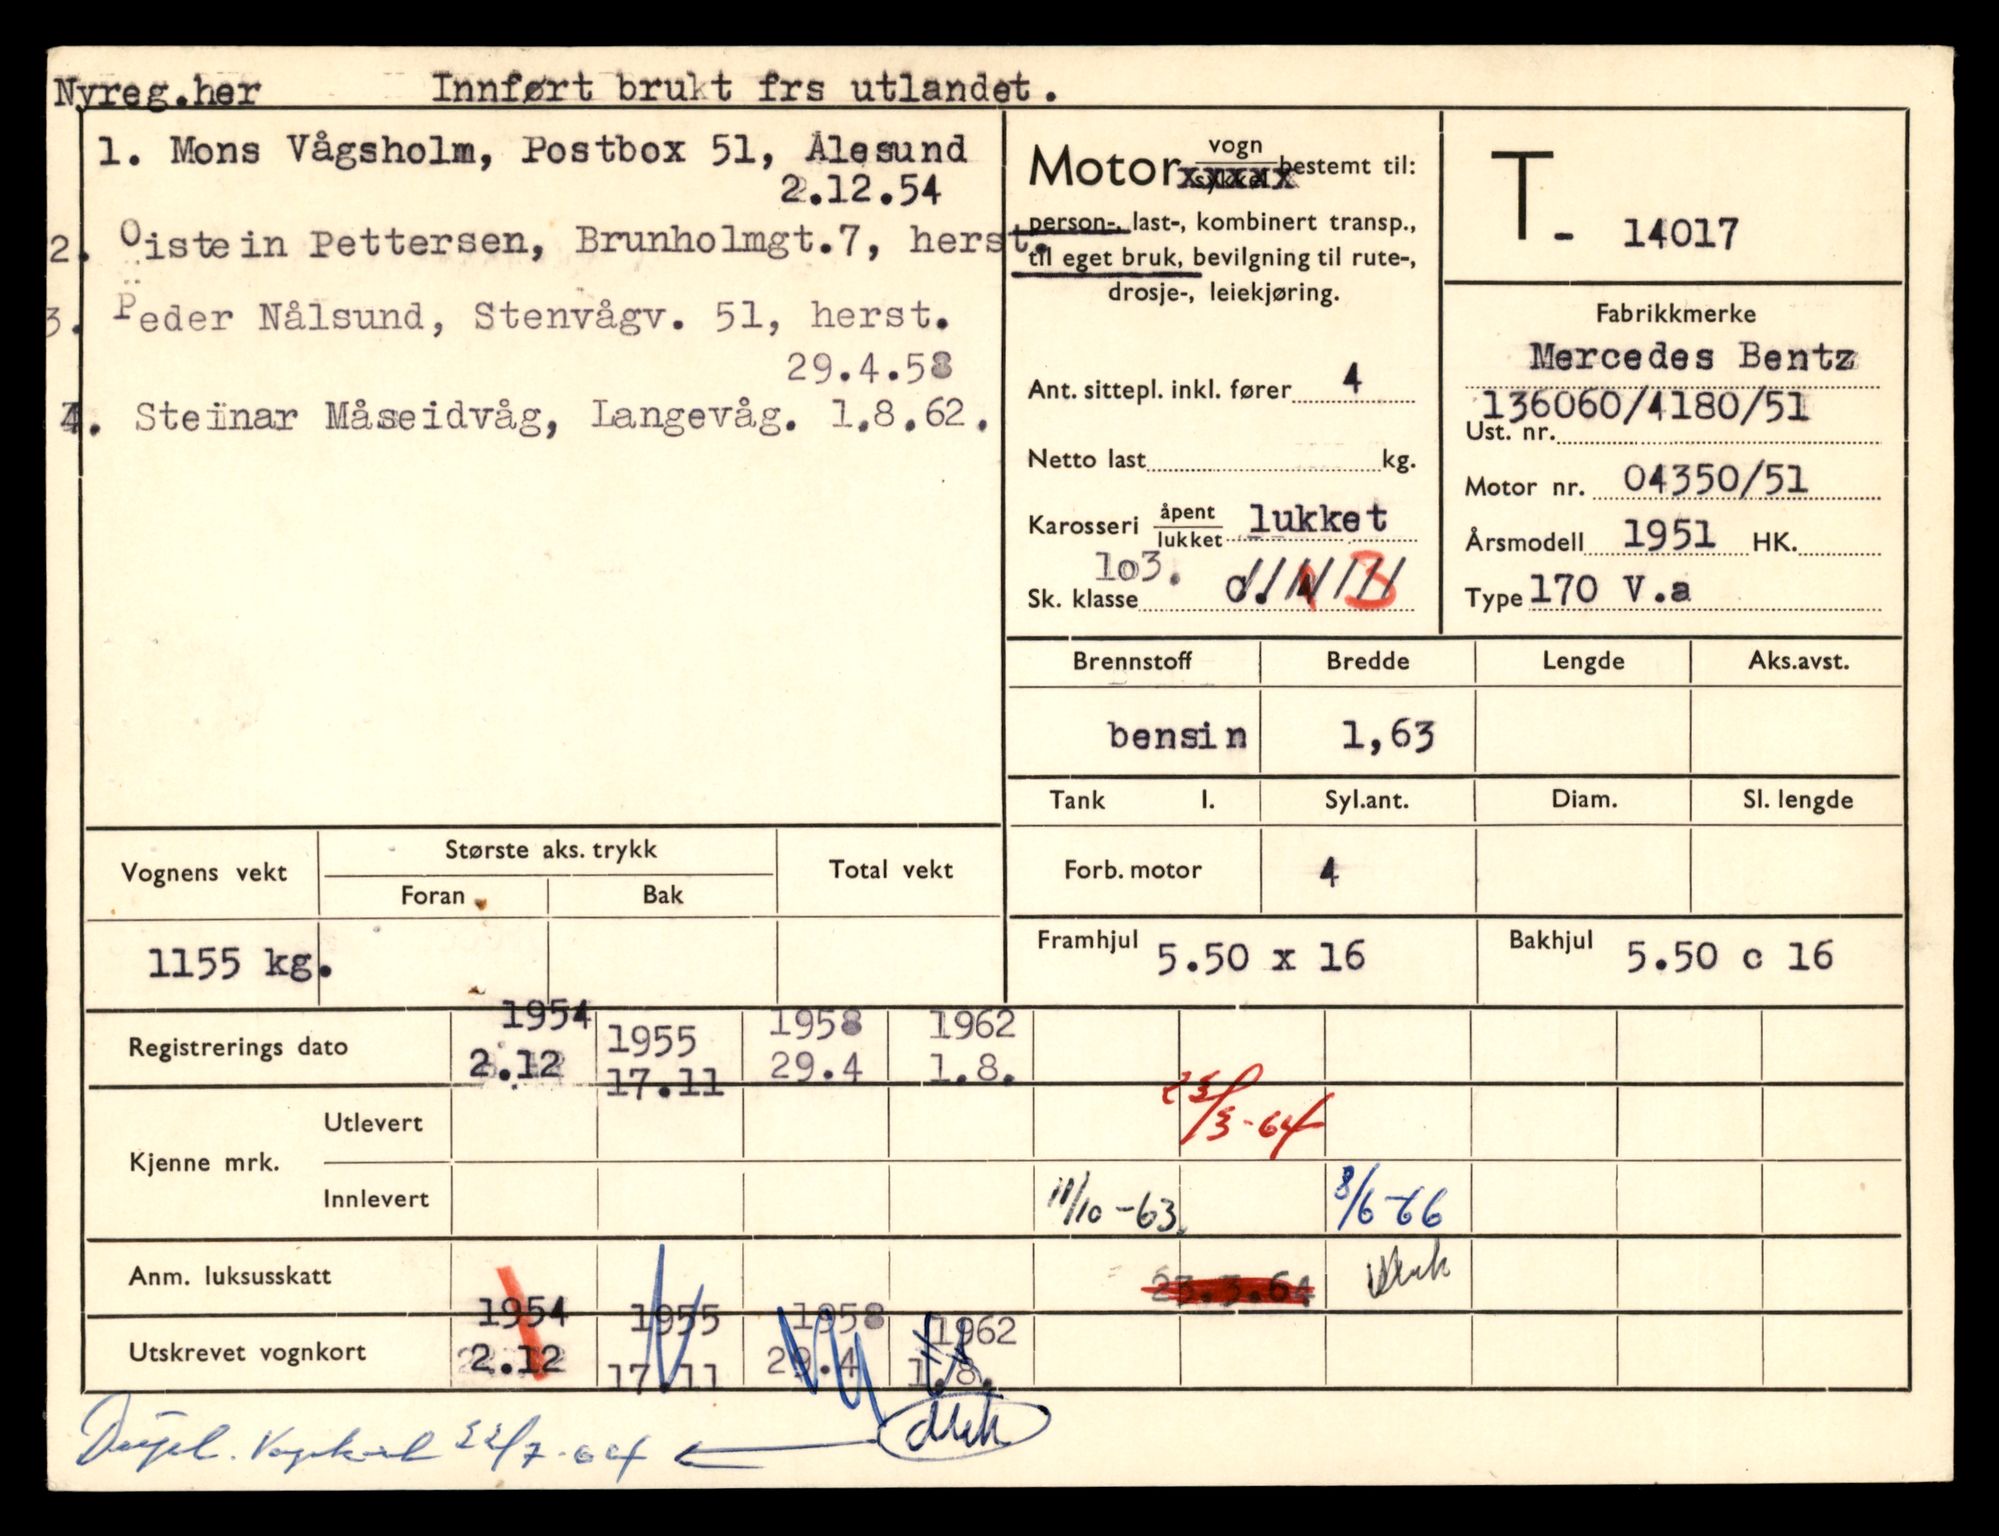 Nyreg.her Innført brukt frs utlandet.
1. Mons Vågsholm, Postbox 51, Ålesund
2.12.54
2. Oistein Pettersen, Brunholmgt.7, herst.
3. Peder Nålsund, Stenvågv. 51, herst.
29.4.58
4. Steinar Måseidvåg, Langevåg. 1.8.62.
Motor vogn sykkel bestemt til:
person-, last-, kombinert transp.,
til eget bruk, bevilgning til rute-,
drosje-, leiekjøring.
Ant. sittepl. inkl. fører 4
Netto last kg.
Karosseri åpent lukket lukket
Sk. klasse 1o3. B
T- 14017
Fabrikkmerke
Mercedes Bentz
Ust. nr. 136060/4180/51
Motor nr. 04350/51
Årsmodell 1951 HK.
Type 170 V.a
Brennstoff Bredde Lengde Aks.avst.
bensin 1,63
Tank l. Syl.ant. Diam. Sl. lengde
Forb. motor 4
Framhjul 5.50 x 16 Bakhjul 5.50 c 16
Vognens vekt Største aks. trykk Total vekt
Foran Bak
1155 kg.
1954 1955 1958 1962
Registrerings dato 2.12 17.11 29.4 1.8.
Kjenne mrk. Utlevert 23/3-64
Innlevert 11/10-63 8/6-66
Anm. luksusskatt 23.3.64
1954 1955 1958 1962
Utskrevet vognkort 2.12 17.11 29.4 1.8.
Dupl. Vognkort 22/7-64